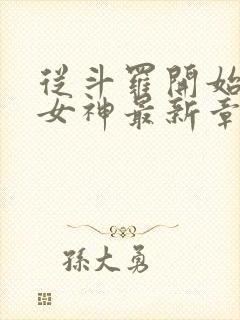 從斗羅開始
女神最新章
孫大勇